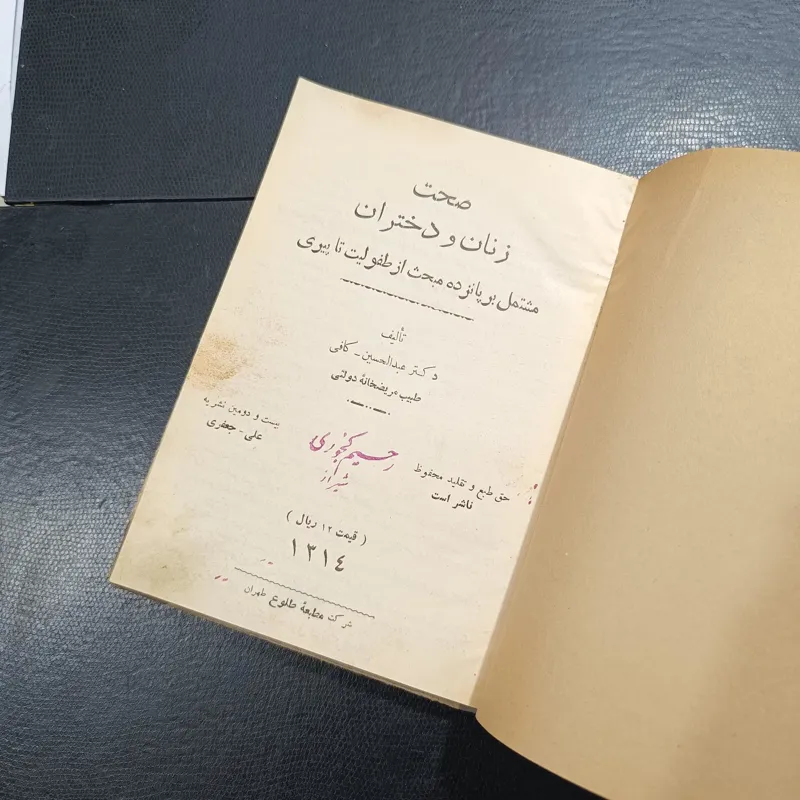 صحت
زنان و دختران
مشتمل بر پانزده مبحث از طفولیت تا پیری
تألیف
دکتر عبدالحسین - کافی
طبیب مریضخانهٔ دولتی
حق طبع و تقلید محفوظ
ناشر است
رحیم
شیراز
بیست و دومین نشریه
علی - جعفری
( قیمت ۱۲ ریال )
۱۳۱٤
شرکت مطبعهٔ طلوع طهران